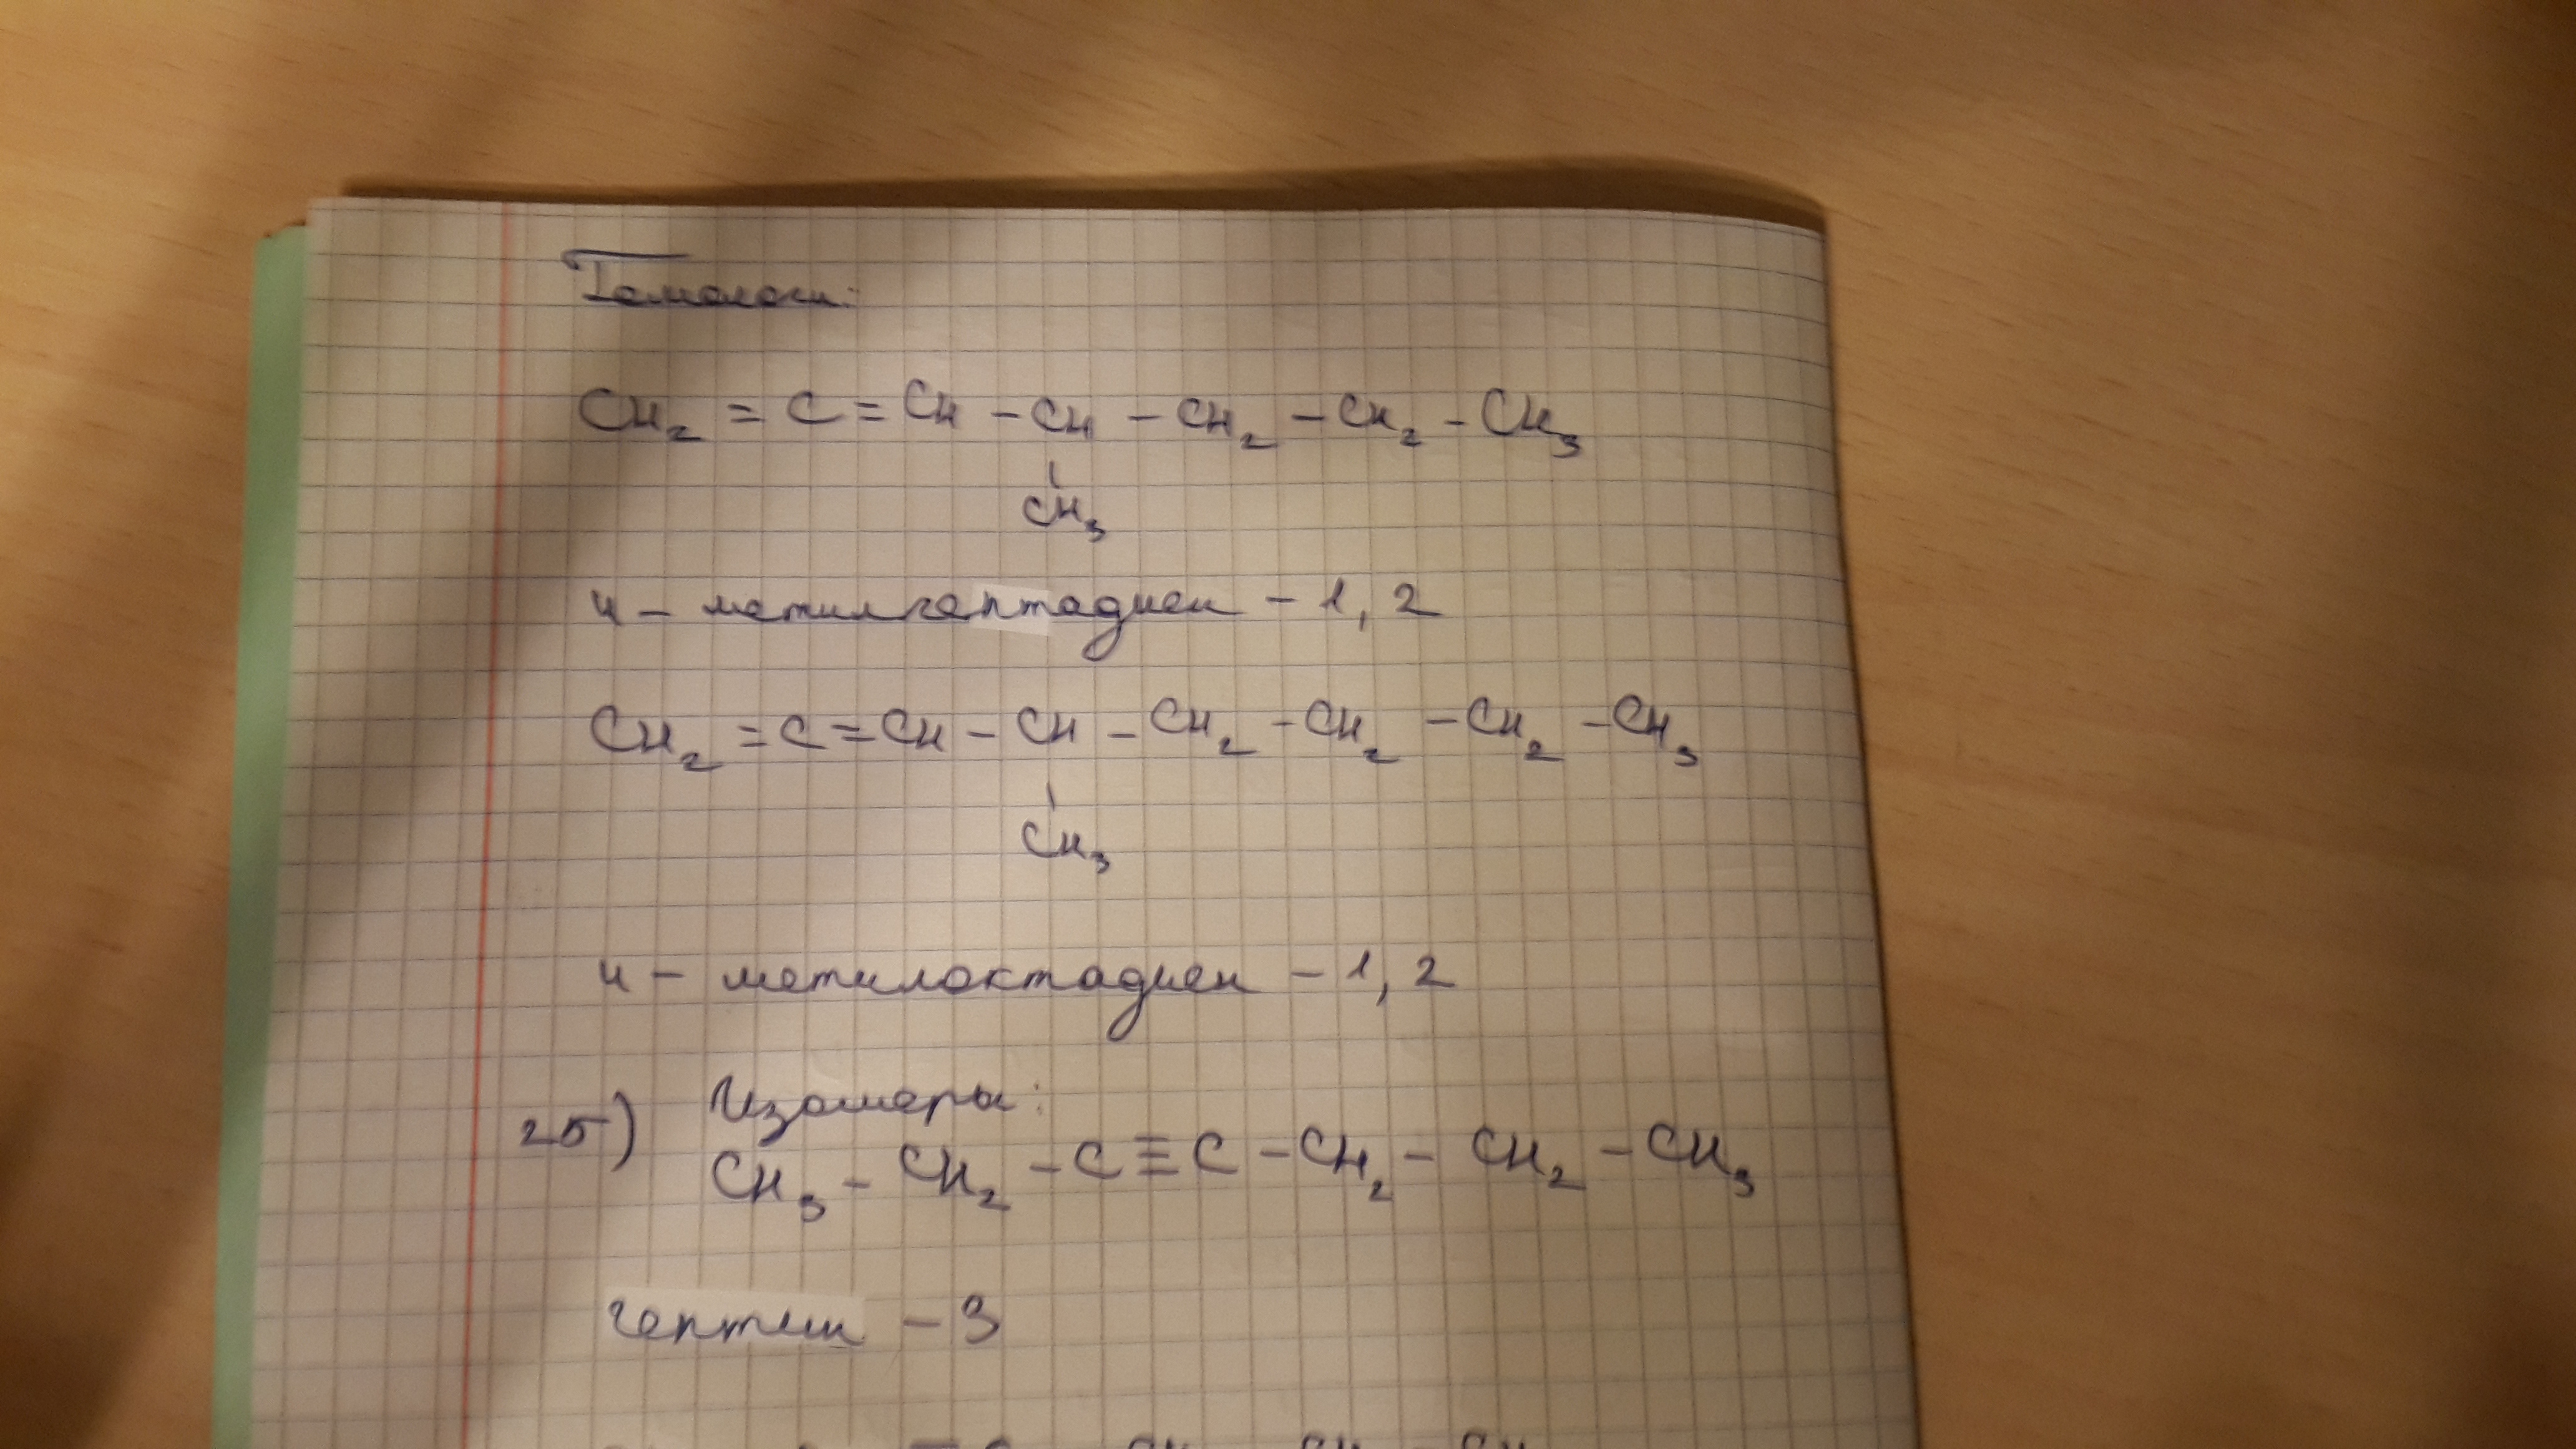 Гомологи:
CH₂ = C = CH - CH - CH₂ - CH₂ - CH₃
CH₃
4 - метилгептадиен - 1, 2
CH₂ = C = CH - CH - CH₂ - CH₂ - CH₂ - CH₃
CH₃
4 - метилоктадиен - 1, 2
25) Изомеры:
CH₃ - CH₂ - C ≡ C - CH₂ - CH₂ - CH₃
гептин - 3